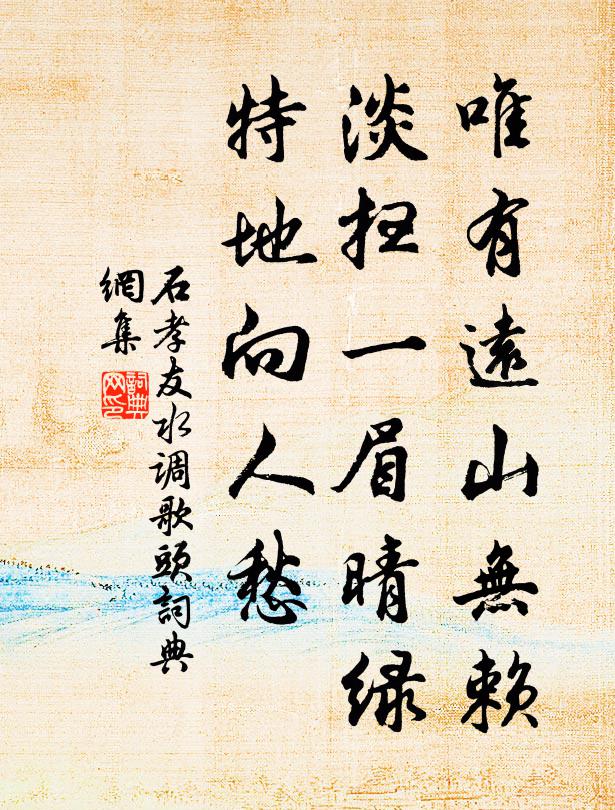 唯有遠山無賴
淡扫一眉晴緑
特地向人愁
石孝友水调歌頭詞典
網集
詞典
网印